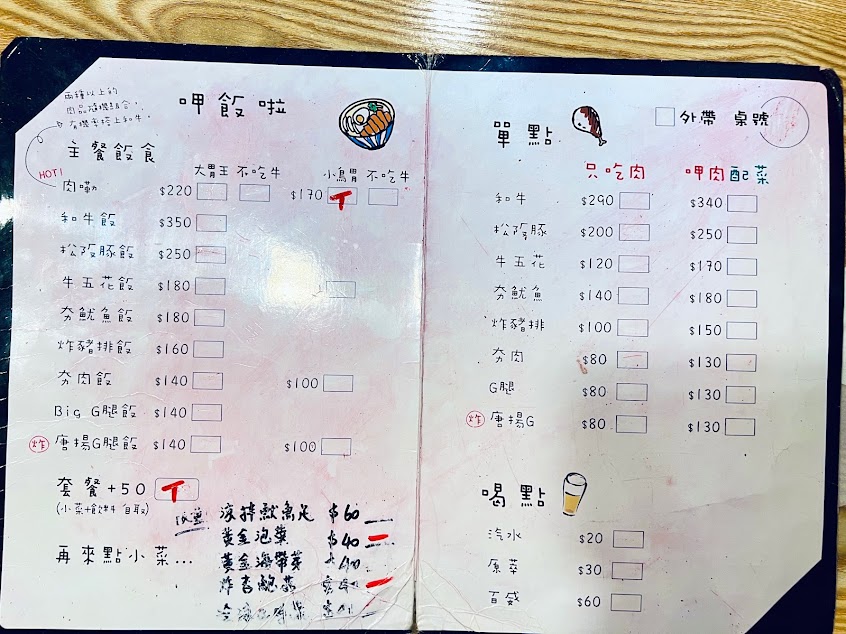 兩種以上的
肉品隨機組合，
有機率搭上和牛。
呷飯啦
主餐飯食
大胃王 不吃牛 小鳥胃 不吃牛
HOT!
肉嘞 $220 $170
和牛飯 $350
松阪豚飯 $250
牛五花飯 $180
夯魷魚飯 $180
炸豬排飯 $160
夯肉飯 $140 $100
Big G腿飯 $140
炸 唐揚G腿飯 $140 $100
套餐+50
(小菜+飲料 自取)
再來點小菜...
涼拌魷魚足 $60
黃金泡菜 $40
黃金海帶芽 $40
炸杏鮑菇
單點
外帶 桌號
只吃肉 呷肉配菜
和牛 $290 $340
松阪豚 $200 $250
牛五花 $120 $170
夯魷魚 $140 $180
炸豬排 $100 $150
夯肉 $80 $130
G腿 $80 $130
炸 唐揚G $80 $130
喝點
汽水 $20
原萃 $30
百威 $60